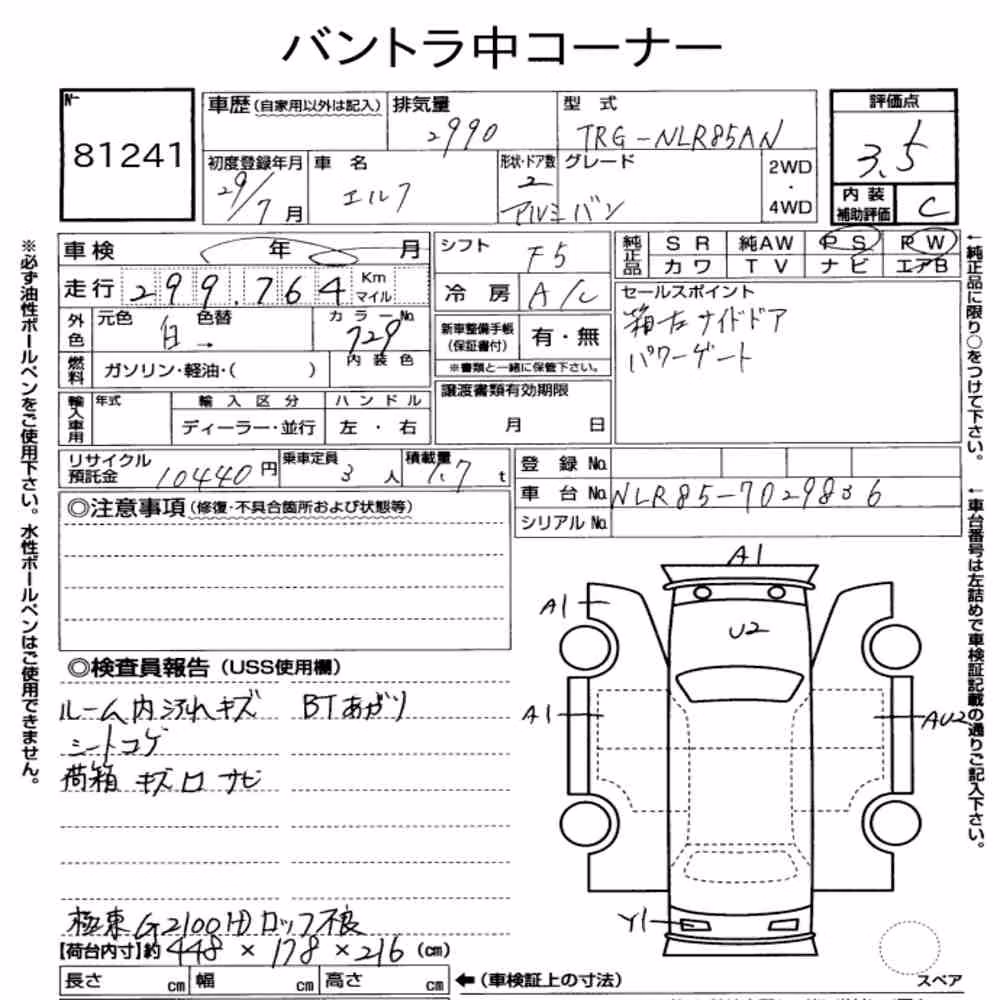 バントラ中コーナー
№
81241
車歴(自家用以外は記入)
排気量
2990
型 式
TRG-NLR85AN
評価点
3.5
初度登録年月
29/7月
車 名
エルフ
形状・ドア数
2
アルミバン
グレード
2WD
・
4WD
内 装
補助評価
C
車 検 年 月
走 行 299.764 Km
マイル
外色
元色 白
色替 →
カラー№
729
内 装 色
燃料
ガソリン・軽油・( )
輸入車用
年式
輸 入 区 分
ディーラー・並行
ハ ン ド ル
左 ・ 右
シフト
F5
冷 房
A/C
新車整備手帳
(保証書付)
有・無
※書類と一緒に保管下さい。
譲渡書類有効期限
月 日
純正品
S R 純AW P S P W
カ ワ T V ナ ビ エアB
セールスポイント
箱左サイドドア
パワーゲート
リサイクル
預託金 10440 円
乗車定員
3 人
積載量
1.7 t
登 録 №
車 台 № NLR85-7029836
シリアル №
◎注意事項(修復・不具合箇所および状態等)
◎検査員報告(USS使用欄)
ルーム内汚れキズ BTあがり
シートコゲ
荷箱 キズ凹 サビ
極東 G2100H ロック不良
【荷台内寸】約 448 × 178 × 216 (cm)
長さ cm 幅 cm 高さ cm
←(車検証上の寸法)
A1
A1
U2
A1
AU2
Y1
スペア
※必ず油性ボールペンをご使用下さい。水性ボールペンはご使用できません。
←純正品に限り○をつけて下さい。
←車台番号は左詰めで車検証記載の通りご記入下さい。